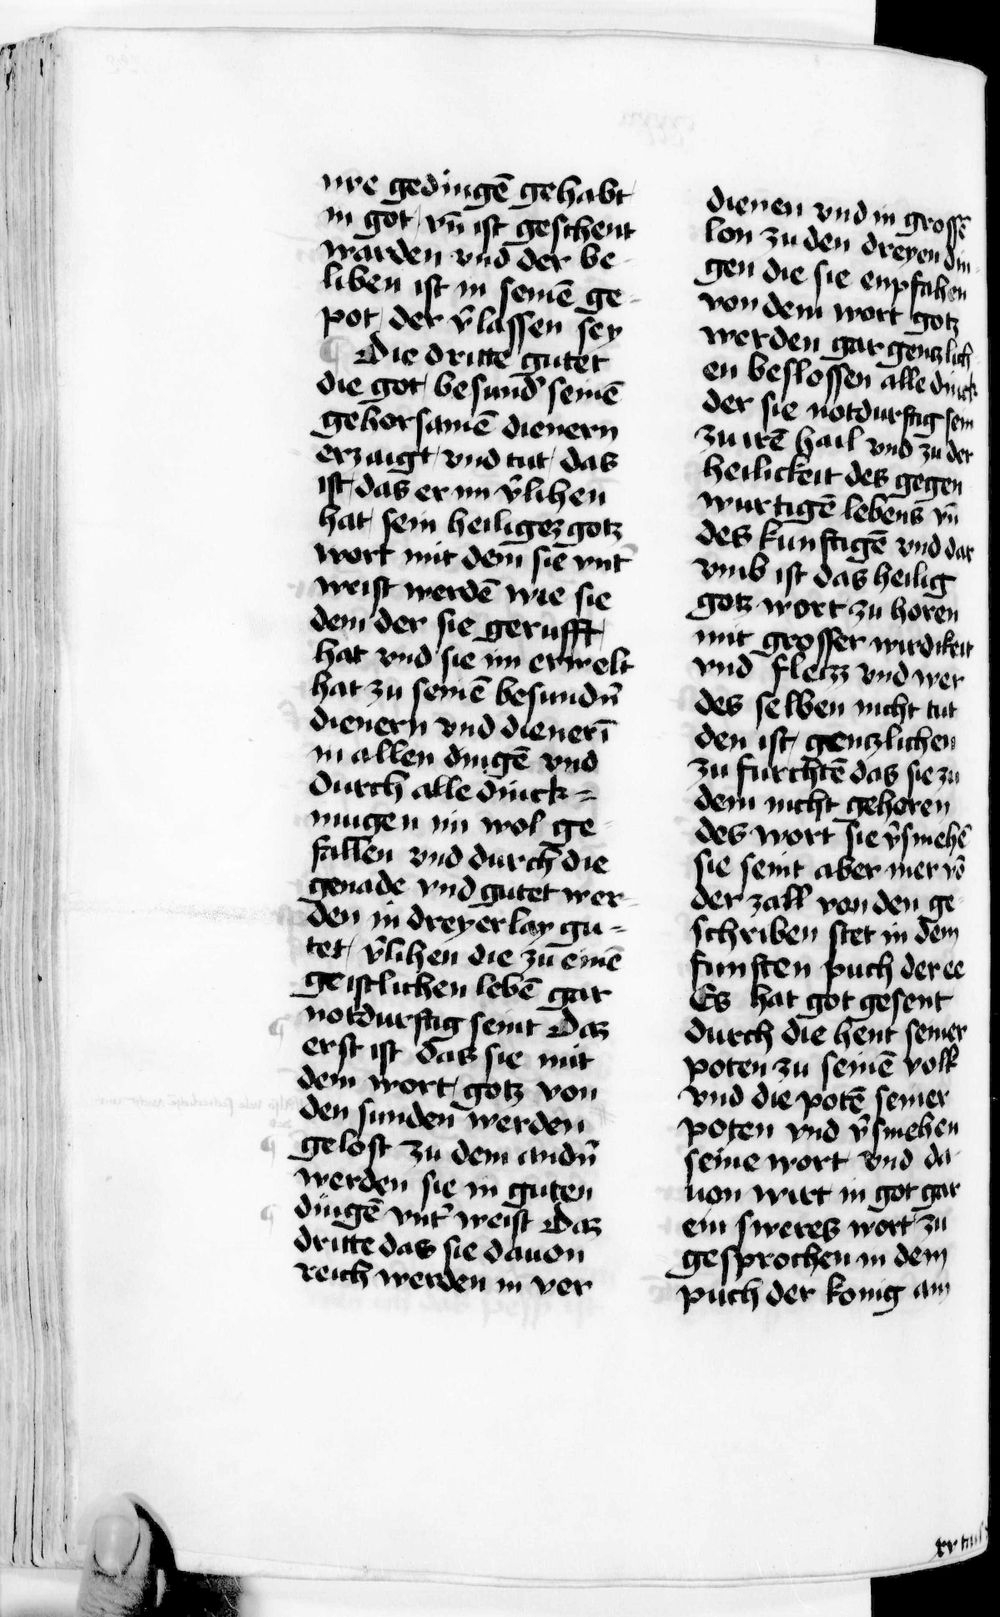 ure gedingē gehabt
in got / vn̄ ist geschent
warden vnd der be-
liben ist in seinē ge-
pot / der v̄lassen sey
¶ Die dritte gutet
die got / besund̄ seinē
gehorsamē dienern
erzaigt / vnd tut / das
ist / das er im v̄lihen
hat / sein heiligez gotz
wort mit dem sie vnt̄
weist werdē wie sie
dem der sie gerufft /
hat vnd sie im erwelt
hat zu seinē besundn̄
dienern vnd dienerī
in allen dingē vnd
durch alle dinck=
mugen im wol ge-
fallen vnd durch die
genade vnd gutet wer-
den in dreyerlay gu=
tet / v̄lihen die zu einē
geistlichen lebē gar
notdurftig seint Daz
erst ist das sie mit
dem wort / gotz von
den sunden werden
gelost zu dem andn̄
werden sie in guten
dingē vnt̄ weist Daz
dritte das sie dauon
reich werden in ver
dienen vnd in grossē
lon zu den dreyen din-
gen die sie enpfahen
von dem wort gotz
werden gar genczlich
en beslossen alle dinck
der sie notdurftig sein
zu irē hail vnd zu der
heilickeit des gegen
wurtigē lebens vn̄
des kunftigē vnd dar
vmb ist das heilig
gotz wort zu horen
mit grosser wirdikeit
vnd fleizz vnd wer
des selben nicht tut
den ist / genczlichen
zu furchtē das sie zu
dem nicht gehoren
des wort sie v̄smehē
sie seint aber mer vō
der zall von den ge
schriben stet in dem
funften puch der ee
Es hat got gesent
durch die hent seiner
poten zu seinē volk
vnd die potē seiner
poten vnd v̄smehen
seine wort vnd da
uon wirt in got gar
ein sweres wort zu
gesprochen in dem
puch der konig am